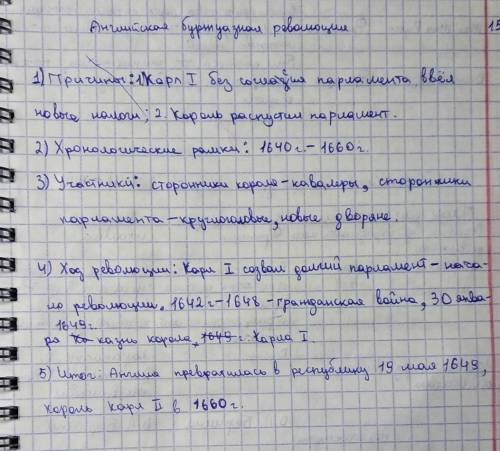 Английская буржуазная революция
15
1) Причины: 1) Карл I без согласия парламента ввёл
новые налоги; 2. Король распустил парламент.
2) Хронологические рамки: 1640г. – 1660г.
3) Участники: сторонники короля-кавалеры, сторонники
парламента – круглоголовые, новые дворяне.
4) Ход революции: Карл I созвал долгий парламент – нача-
ло революции. 1642г – 1648 – гражданская война, 30 янва-
1649г.
ря казнь короля, 1649г. Карла I.
5) Итог: Англия превратилась в республику 19 мая 1649,
король Карл II в 1660г.